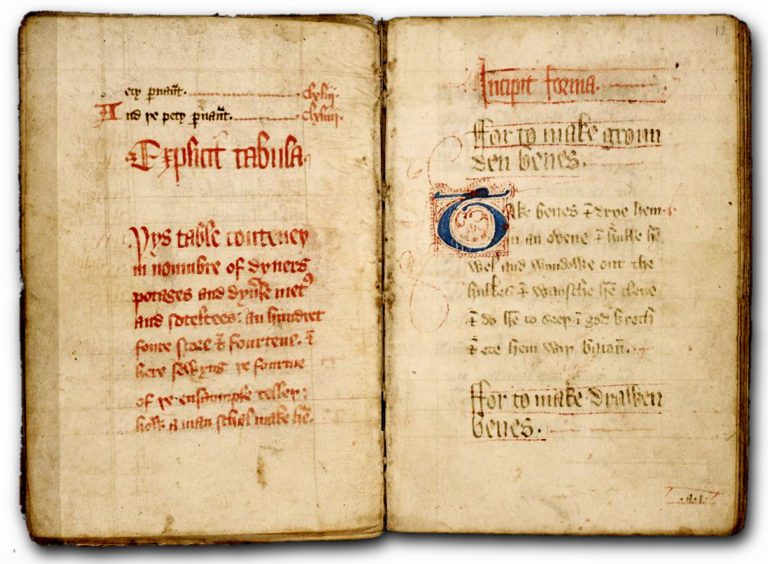 ety puaūt. clxiij.
And ye pety puaūt. clxiiij.
Explicit tabula
Þys table conteney
in nombre of dyuers
potages and dyuͬse metꝰ
and soteltees: an hundret
foure score & fourtene. &
here sewyng ye fourme
of ye ensaumple tellez:
how a man schul make hē.
12
Incipit forma.
ffor to make groun
den benes.
Take benes & drye hem
in an ovene & hulke hē
wel and wyndowe out the
hulkes & waysche hē clene
& do hē to seeþ ī god broth
& ete hem wiþ bacoū.
ffor to make drawen
benes.
.a.i.